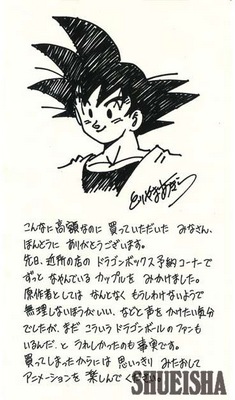 とりやまあきら
こんなに高額なのに買っていただいたみなさん、
ほんとうにありがとうございます。
先日、近所の店のドラゴンボックス予約コーナーで
ずっとなやんでいるカップルをみかけました。
原作者としてはなんとなくもうしわけないようで
無理しないほうがいい、などと声をかけたい気分
でしたが、まだこういうドラゴンボールのファンも
いるんだ、とうれしかったのも事実です。
買ってしまったからには思いっきりみたおして
アニメーションを楽しんでください。
SHUEISHA